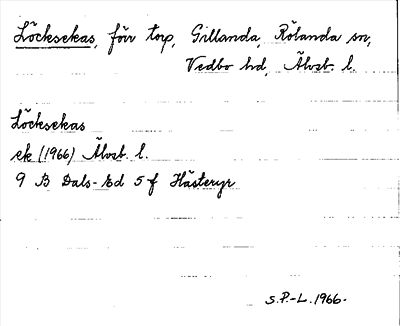 Löcksekas, förr torp, Gillanda, Rölanda sn,
Vedbo hd, Älvsb. l.
Löcksekas
ek (1966) Älvsb. l.
9 B Dals-Ed 5 f Hästeryr
S.P.-L. 1966.